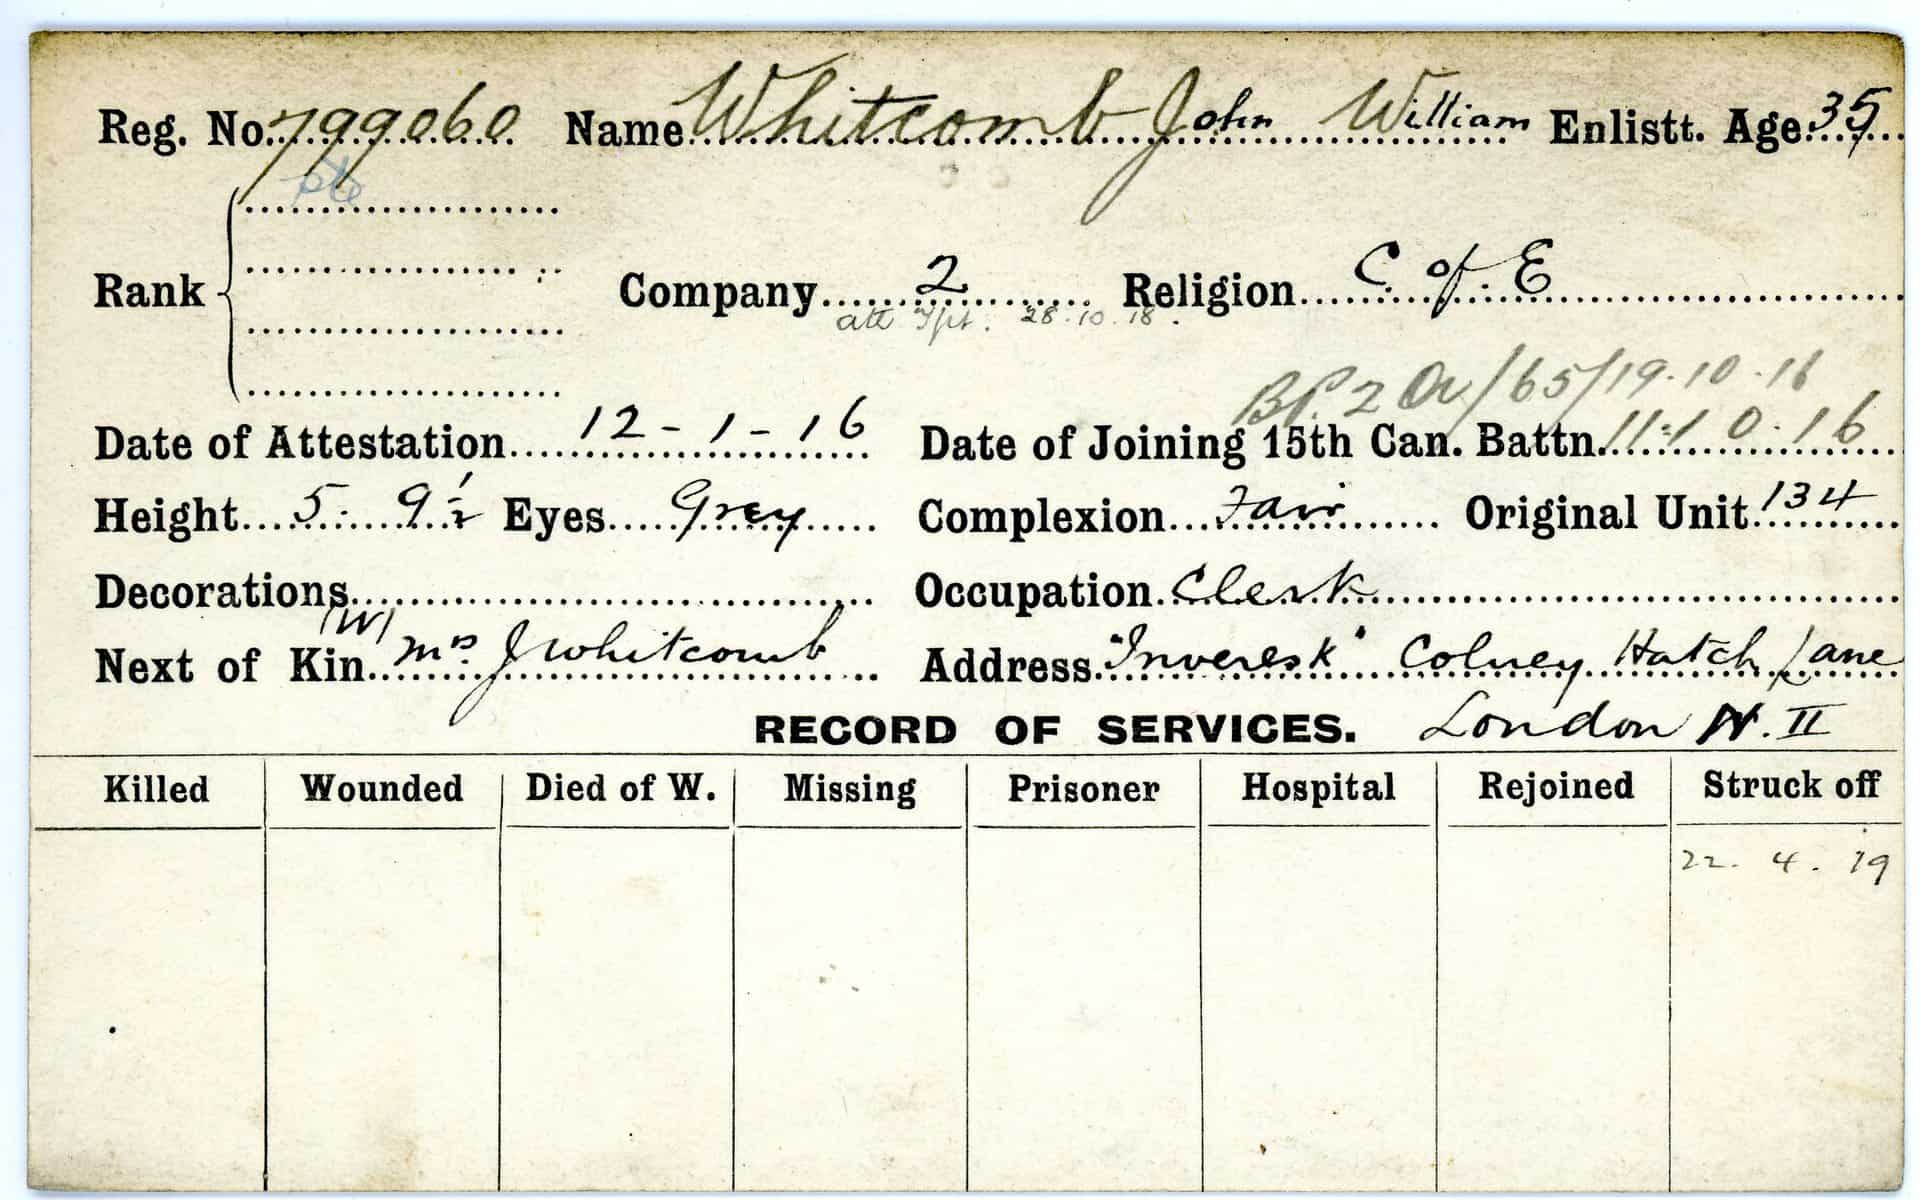 Reg. No. 799060 Name Whitcomb John William Enlistt. Age 35
Pte
Rank Company 2 Religion C of E
att Tpt. 28.10.18.
Bt. 2 Or/65/19.10.16
Date of Attestation 12-1-16 Date of Joining 15th Can. Battn. 11.10.16
Height 5. 9 1/2 Eyes Grey Complexion Fair Original Unit 134
Decorations Occupation Clerk
(W)
Next of Kin Mrs. J Whitcomb Address "Inveresk" Colney Hatch Lane
RECORD OF SERVICES. London N. II
Killed Wounded Died of W. Missing Prisoner Hospital Rejoined Struck off
22. 4. 19